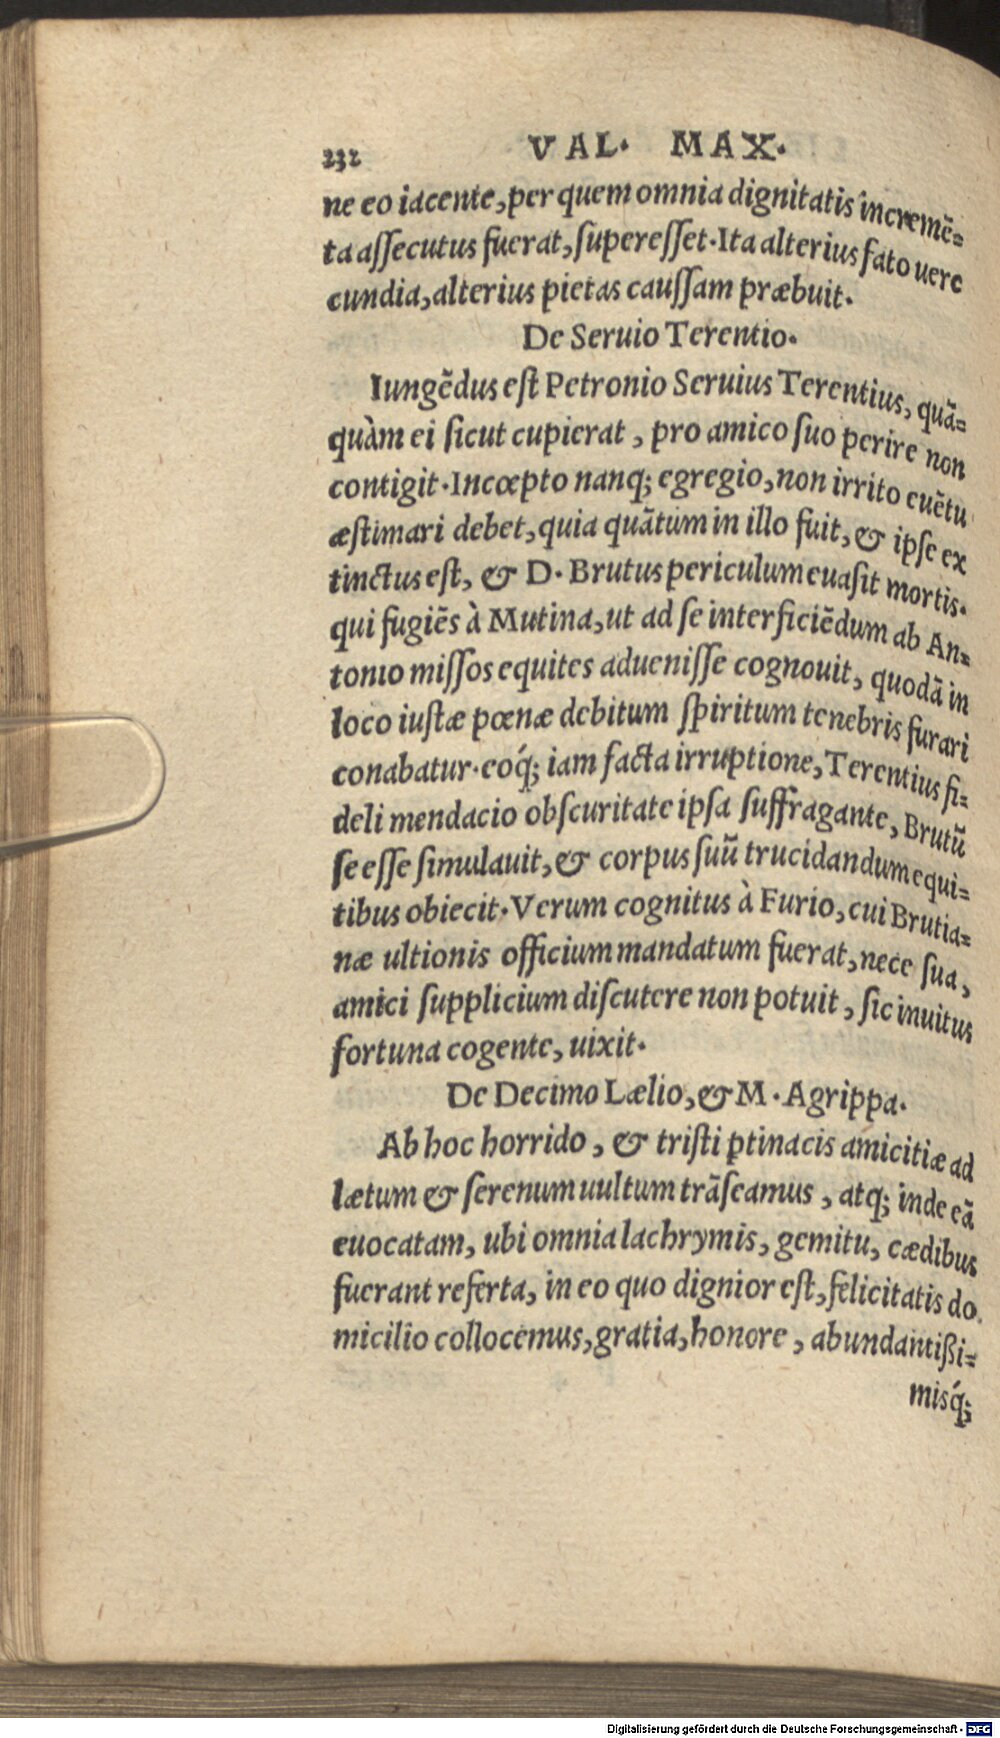 232 VAL. MAX.
ne eo iacente, per quem omnia dignitatis incremẽ-
ta aſſecutus fuerat, ſupereſſet. Ita alterius fato uere
cundia, alterius pietas cauſſam præbuit.
De Seruio Terentio.
Iungẽdus eſt Petronio Seruius Terentius, quã-
quàm ei ſicut cupierat, pro amico ſuo perire non
contigit. Incœpto nanq; egregio, non irrito euẽtu
æſtimari debet, quia quãtum in illo fuit, & ipſe ex
tinctus eſt, & D. Brutus periculum euaſit mortis.
qui fugiẽs à Mutina, ut ad ſe interficiẽdum ab An-
tonio miſſos equites adueniſſe cognouit, quodã in
loco iuſtæ pœnæ debitum ſpiritum tenebris furari
conabatur. eoq́; iam facta irruptione, Terentius fi-
deli mendacio obſcuritate ipſa ſuffragante, Brutũ
ſe eſſe ſimulauit, & corpus ſuũ trucidandum equi-
tibus obiecit. Verum cognitus à Furio, cui Brutia-
næ ultionis officium mandatum fuerat, nece ſua,
amici ſupplicium diſcutere non potuit, ſic inuitus
fortuna cogente, uixit.
De Decimo Lælio, & M. Agrippa.
Ab hoc horrido, & triſti ꝑtinacis amicitiæ ad
lætum & ſerenum uultum trãſeamus, atq; inde eã
euocatam, ubi omnia lachrymis, gemitu, cædibus
fuerant referta, in eo quo dignior eſt, felicitatis do
micilio collocemus, gratia, honore, abundantißi-
misq́;
Digitalisierung gefördert durch die Deutsche Forschungsgemeinschaft - DFG